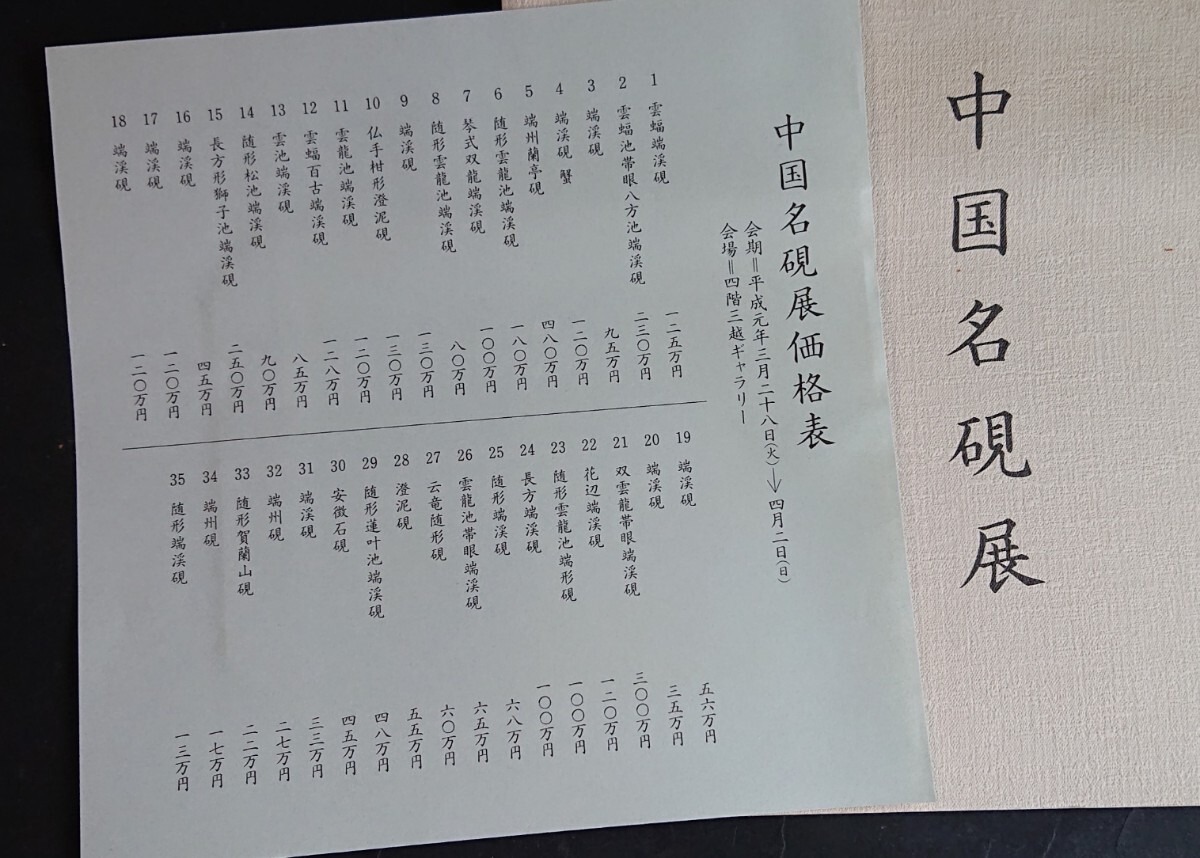 中国名硯展
中国名硯展価格表
会期＝平成元年三月二十八日(火)→四月二日(日)
会場＝四階三越ギャラリー
1 雲蝠端渓硯 一二五万円
2 雲蝠池帯眼八方池端渓硯 二三〇万円
3 端渓硯 九五万円
4 端渓硯 蟹 一二〇万円
5 端州蘭亭硯 四八〇万円
6 随形雲龍池端渓硯 一八〇万円
7 琴式双龍端渓硯 一〇〇万円
8 随形雲龍池端渓硯 八〇万円
9 端渓硯 一三〇万円
10 仏手柑形澄泥硯 一三〇万円
11 雲龍池端渓硯 一二〇万円
12 雲蝠百古端渓硯 一二八万円
13 雲池端渓硯 八五万円
14 随形松池端渓硯 九〇万円
15 長方形獅子池端渓硯 二五〇万円
16 端渓硯 四五万円
17 端渓硯 一二〇万円
18 端渓硯 一二〇万円
19 端渓硯 五六万円
20 端渓硯 三五万円
21 双雲龍帯眼端渓硯 三〇〇万円
22 花辺端渓硯 一二〇万円
23 随形雲龍池端形硯 一〇〇万円
24 長方端渓硯 一〇〇万円
25 随形端渓硯 六八万円
26 雲龍池帯眼端渓硯 六五万円
27 云竜随形硯 六〇万円
28 澄泥硯 五五万円
29 随形蓮叶池端渓硯 四八万円
30 安徴石硯 四五万円
31 端渓硯 三三万円
32 端州硯 二七万円
33 随形賀蘭山硯 二二万円
34 端州硯 一七万円
35 随形端渓硯 一三万円